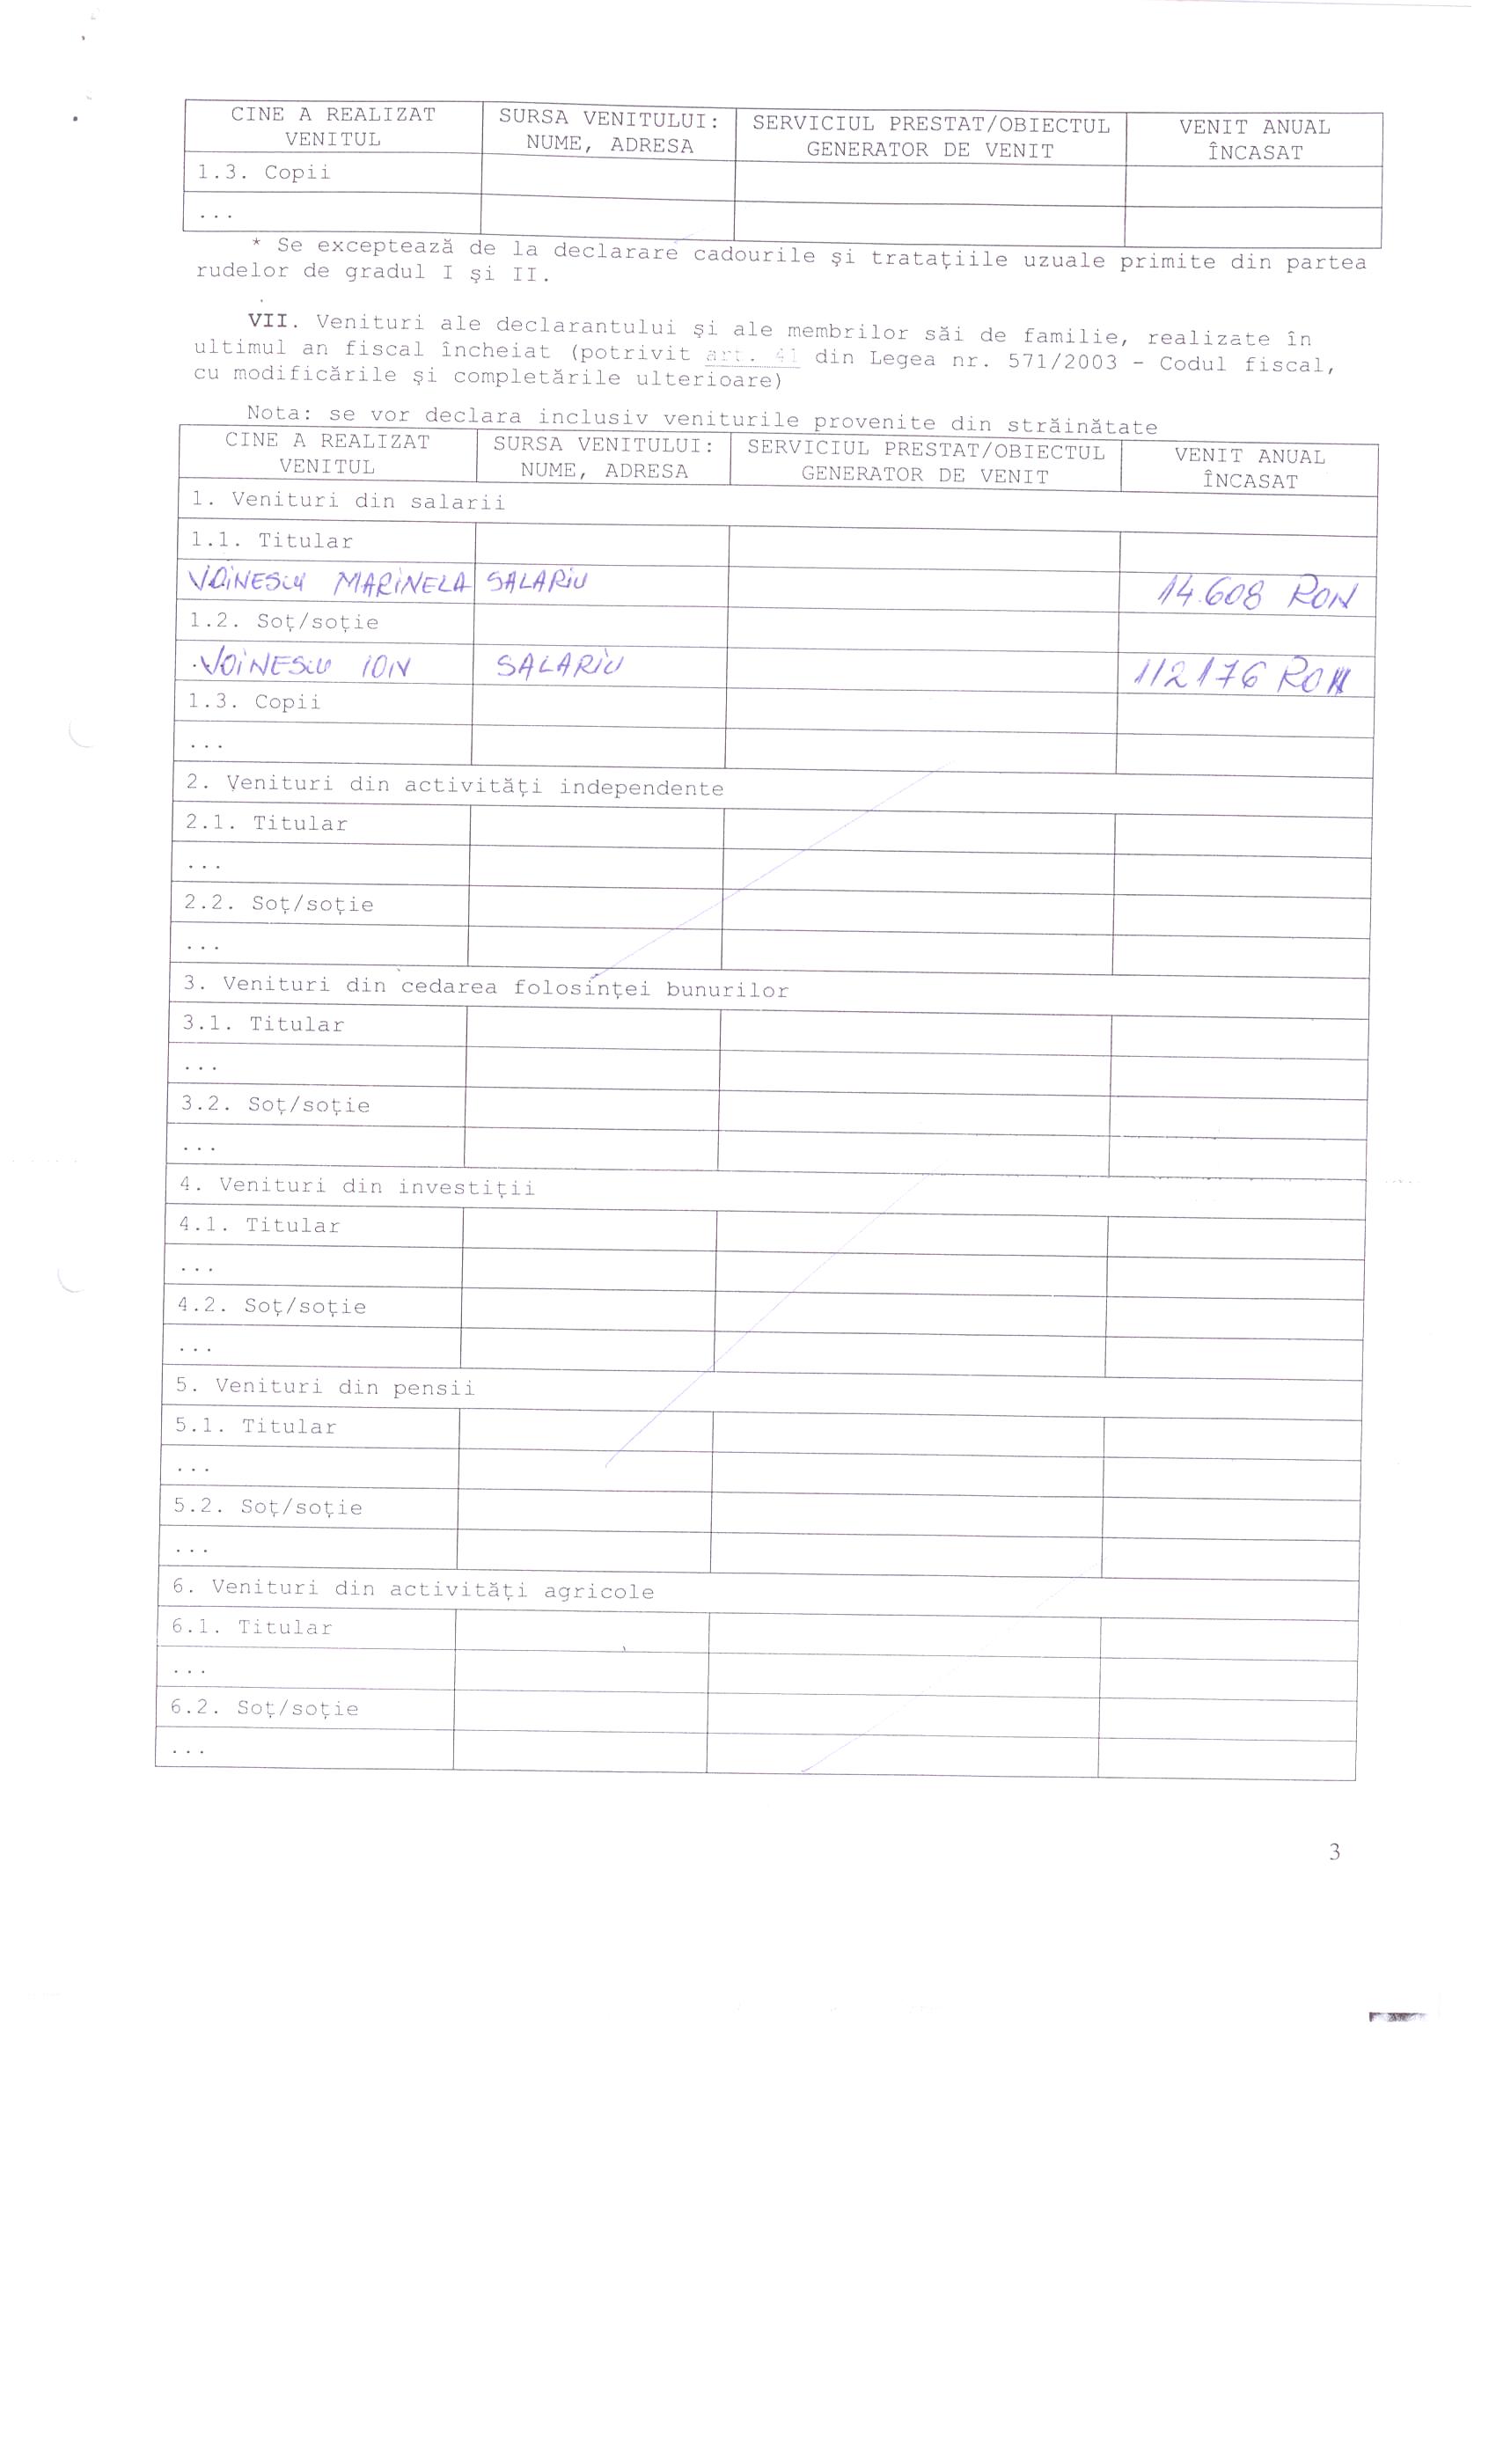 CINE A REALIZAT VENITUL SURSA VENITULUI: NUME, ADRESA SERVICIUL PRESTAT/OBIECTUL GENERATOR DE VENIT VENIT ANUAL ÎNCASAT
1.3. Copii
...
* Se exceptează de la declarare cadourile şi trataţiile uzuale primite din partea
rudelor de gradul I şi II.
VII. Venituri ale declarantului şi ale membrilor săi de familie, realizate în
ultimul an fiscal încheiat (potrivit art. 41 din Legea nr. 571/2003 - Codul fiscal,
cu modificările şi completările ulterioare)
Nota: se vor declara inclusiv veniturile provenite din străinătate
CINE A REALIZAT VENITUL SURSA VENITULUI: NUME, ADRESA SERVICIUL PRESTAT/OBIECTUL GENERATOR DE VENIT VENIT ANUAL ÎNCASAT
1. Venituri din salarii
1.1. Titular
VOINESCU MARINELA SALARIU 14.608 RON
1.2. Soţ/soţie
VOINESCU ION SALARIU 112176 RON
1.3. Copii
...
2. Venituri din activităţi independente
2.1. Titular
...
2.2. Soţ/soţie
...
3. Venituri din cedarea folosinţei bunurilor
3.1. Titular
...
3.2. Soţ/soţie
...
4. Venituri din investiţii
4.1. Titular
...
4.2. Soţ/soţie
...
5. Venituri din pensii
5.1. Titular
...
5.2. Soţ/soţie
...
6. Venituri din activităţi agricole
6.1. Titular
...
6.2. Soţ/soţie
...
3